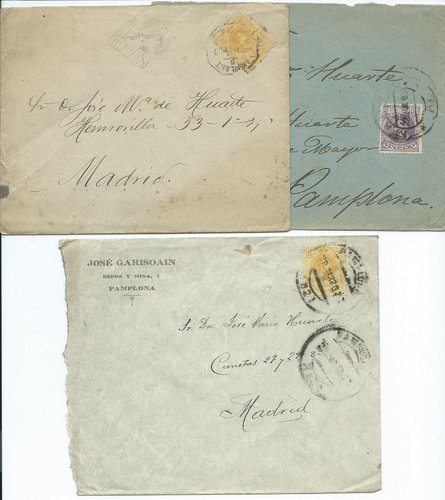 Sr D. José Mª de Huarte
Hermosilla - 33 - 1º
Madrid
Huarte
Huarte
Mayor
Pamplona.
JOSÉ GARISOAIN
ESPOZ Y MINA, 7
PAMPLONA
Sr. Dn. José Maria Huarte
Carretas 27 y 29
Madrid